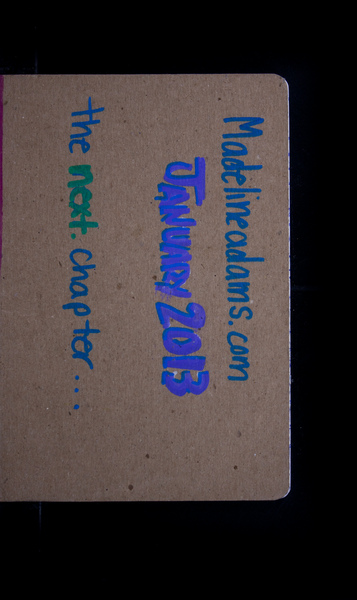 Madelineadams.com
JANUARY 2013
the next. chapter...